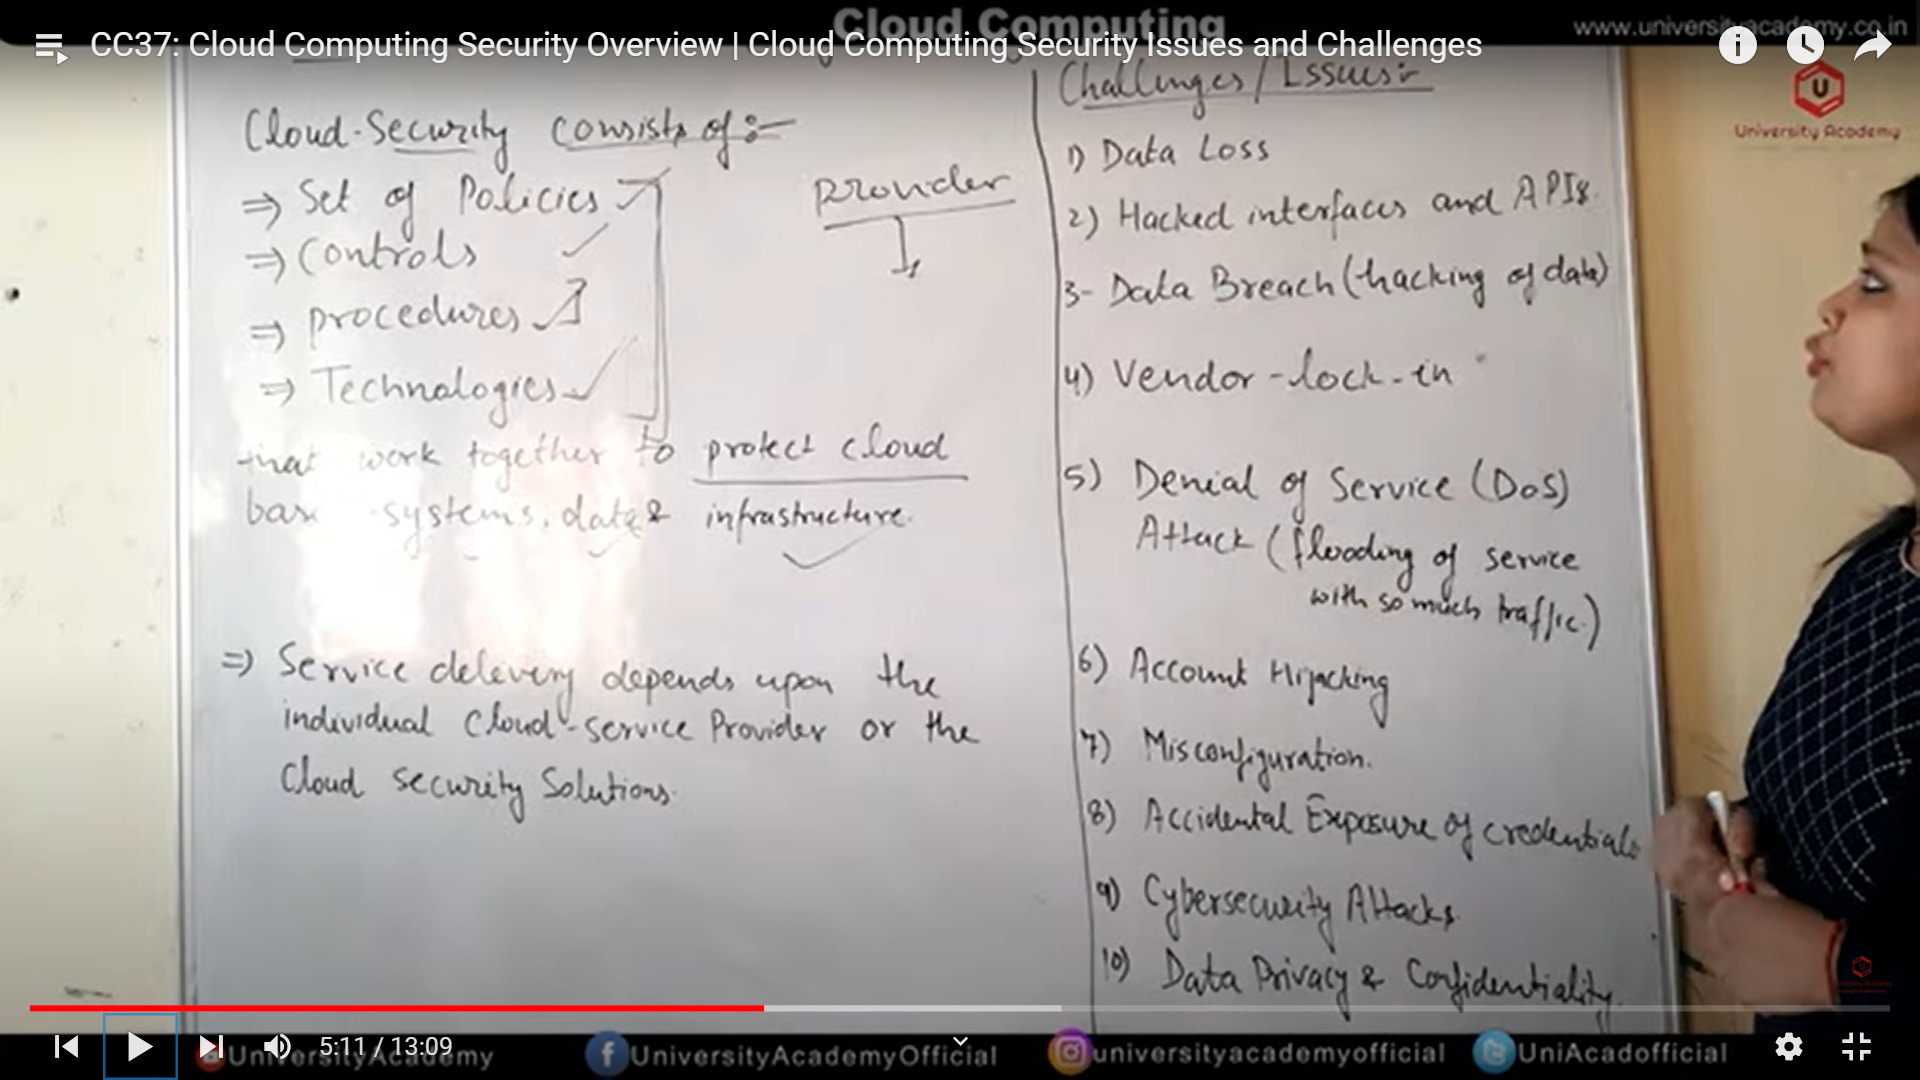 Cloud Computing
www.universityacademy.co.in
CC37: Cloud Computing Security Overview | Cloud Computing Security Issues and Challenges
University Academy
Cloud-Security consists of :-
⇒ Set of Policies
⇒ Controls
⇒ procedures
⇒ Technologies
that work together to protect cloud
systems, data & infrastructure.
provider
⇒ Service delevery depends upon the
individual Cloud-service Provider or the
Cloud security Solutions.
Challenges/Issues:-
1) Data Loss
2) Hacked interfaces and APIs.
3- Data Breach (hacking of data)
4) Vendor-lock-in
5) Denial of Service (DoS)
Attack (flooding of service
with so much traffic.)
6) Account Hijacking
7) Misconfiguration.
8) Accidental Exposure of credentials
9) Cybersecurity Attacks.
10) Data Privacy & Confidentiality.
5:11 / 13:09
UniversityAcademy
UniversityAcademyOfficial
universityacademyofficial
UniAcadofficial